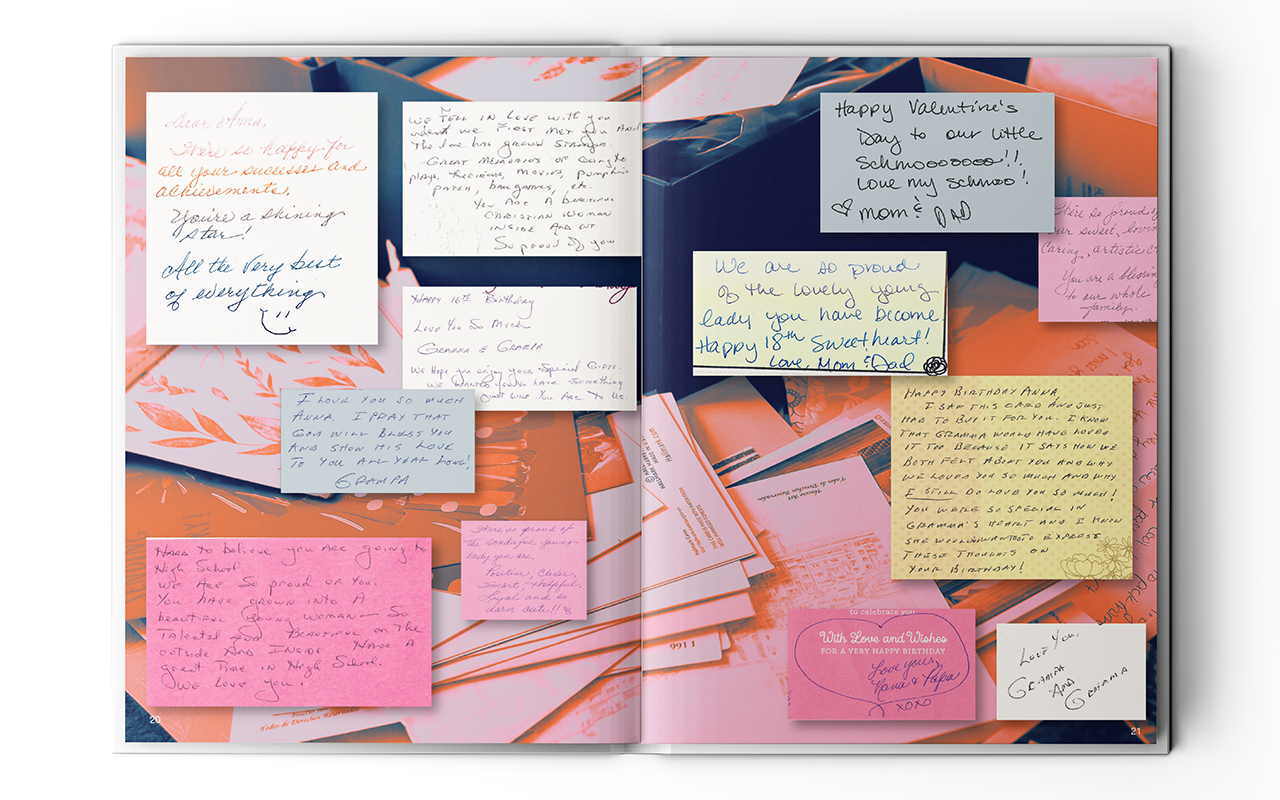 Dear Anna,
We're so happy for
all your successes and
achievements.
You're a shining
star!
All the very best
of everything
We fell in love with you
when we first met you and
the love has grown stronger.
Great memories of going to
plays, recitals, movies, pumpkin
patch, ball games, etc.
You are a beautiful
Christian woman
inside and out.
So proud of you.
Happy 16th Birthday
Love You So Much
Gramma & Grampa
We hope you enjoy your Special Gifts.
We wanted you to have something
Just Like You Are To Us.
I love you so much
Anna, I pray that
God will bless you
and show his love
to you all year long!
Grampa
We're so proud of
the wonderful young
lady you are.
Positive, Clever,
Smart, Helpful,
Loyal and so
darn cute!!
Hard to believe you are going to
High School.
We are so proud of you.
You have grown into a
beautiful young woman - so
talented and beautiful on the
outside and inside. Have a
great time in High School.
We love you.
20
Happy Valentine's
Day to our little
Schmoooooooo!!
Love my Schmoo!
♡ Mom & Dad
We're so proud of
our sweet, lovin
Caring, artistic
You are a blessing
to our whole
family.
We are so proud
of the lovely young
lady you have become
Happy 18th Sweetheart!
Love, Mom & Dad
Happy Birthday Anna,
I saw this card and just
had to buy it for you. I know
that Gramma would have loved
it too because it says how we
both felt about you and why
we loved you so much and why
I still do love you so much!
You were so special in
Gramma's heart and I know
she would want to express
these thoughts on
your birthday!
to celebrate you
With Love and Wishes
FOR A VERY HAPPY BIRTHDAY
Love you,
Nana & Papa
XOXO
Love You,
Grampa
and
Gramma
Hallmark.com
Todos de Derechos Reservados
1 1991
21